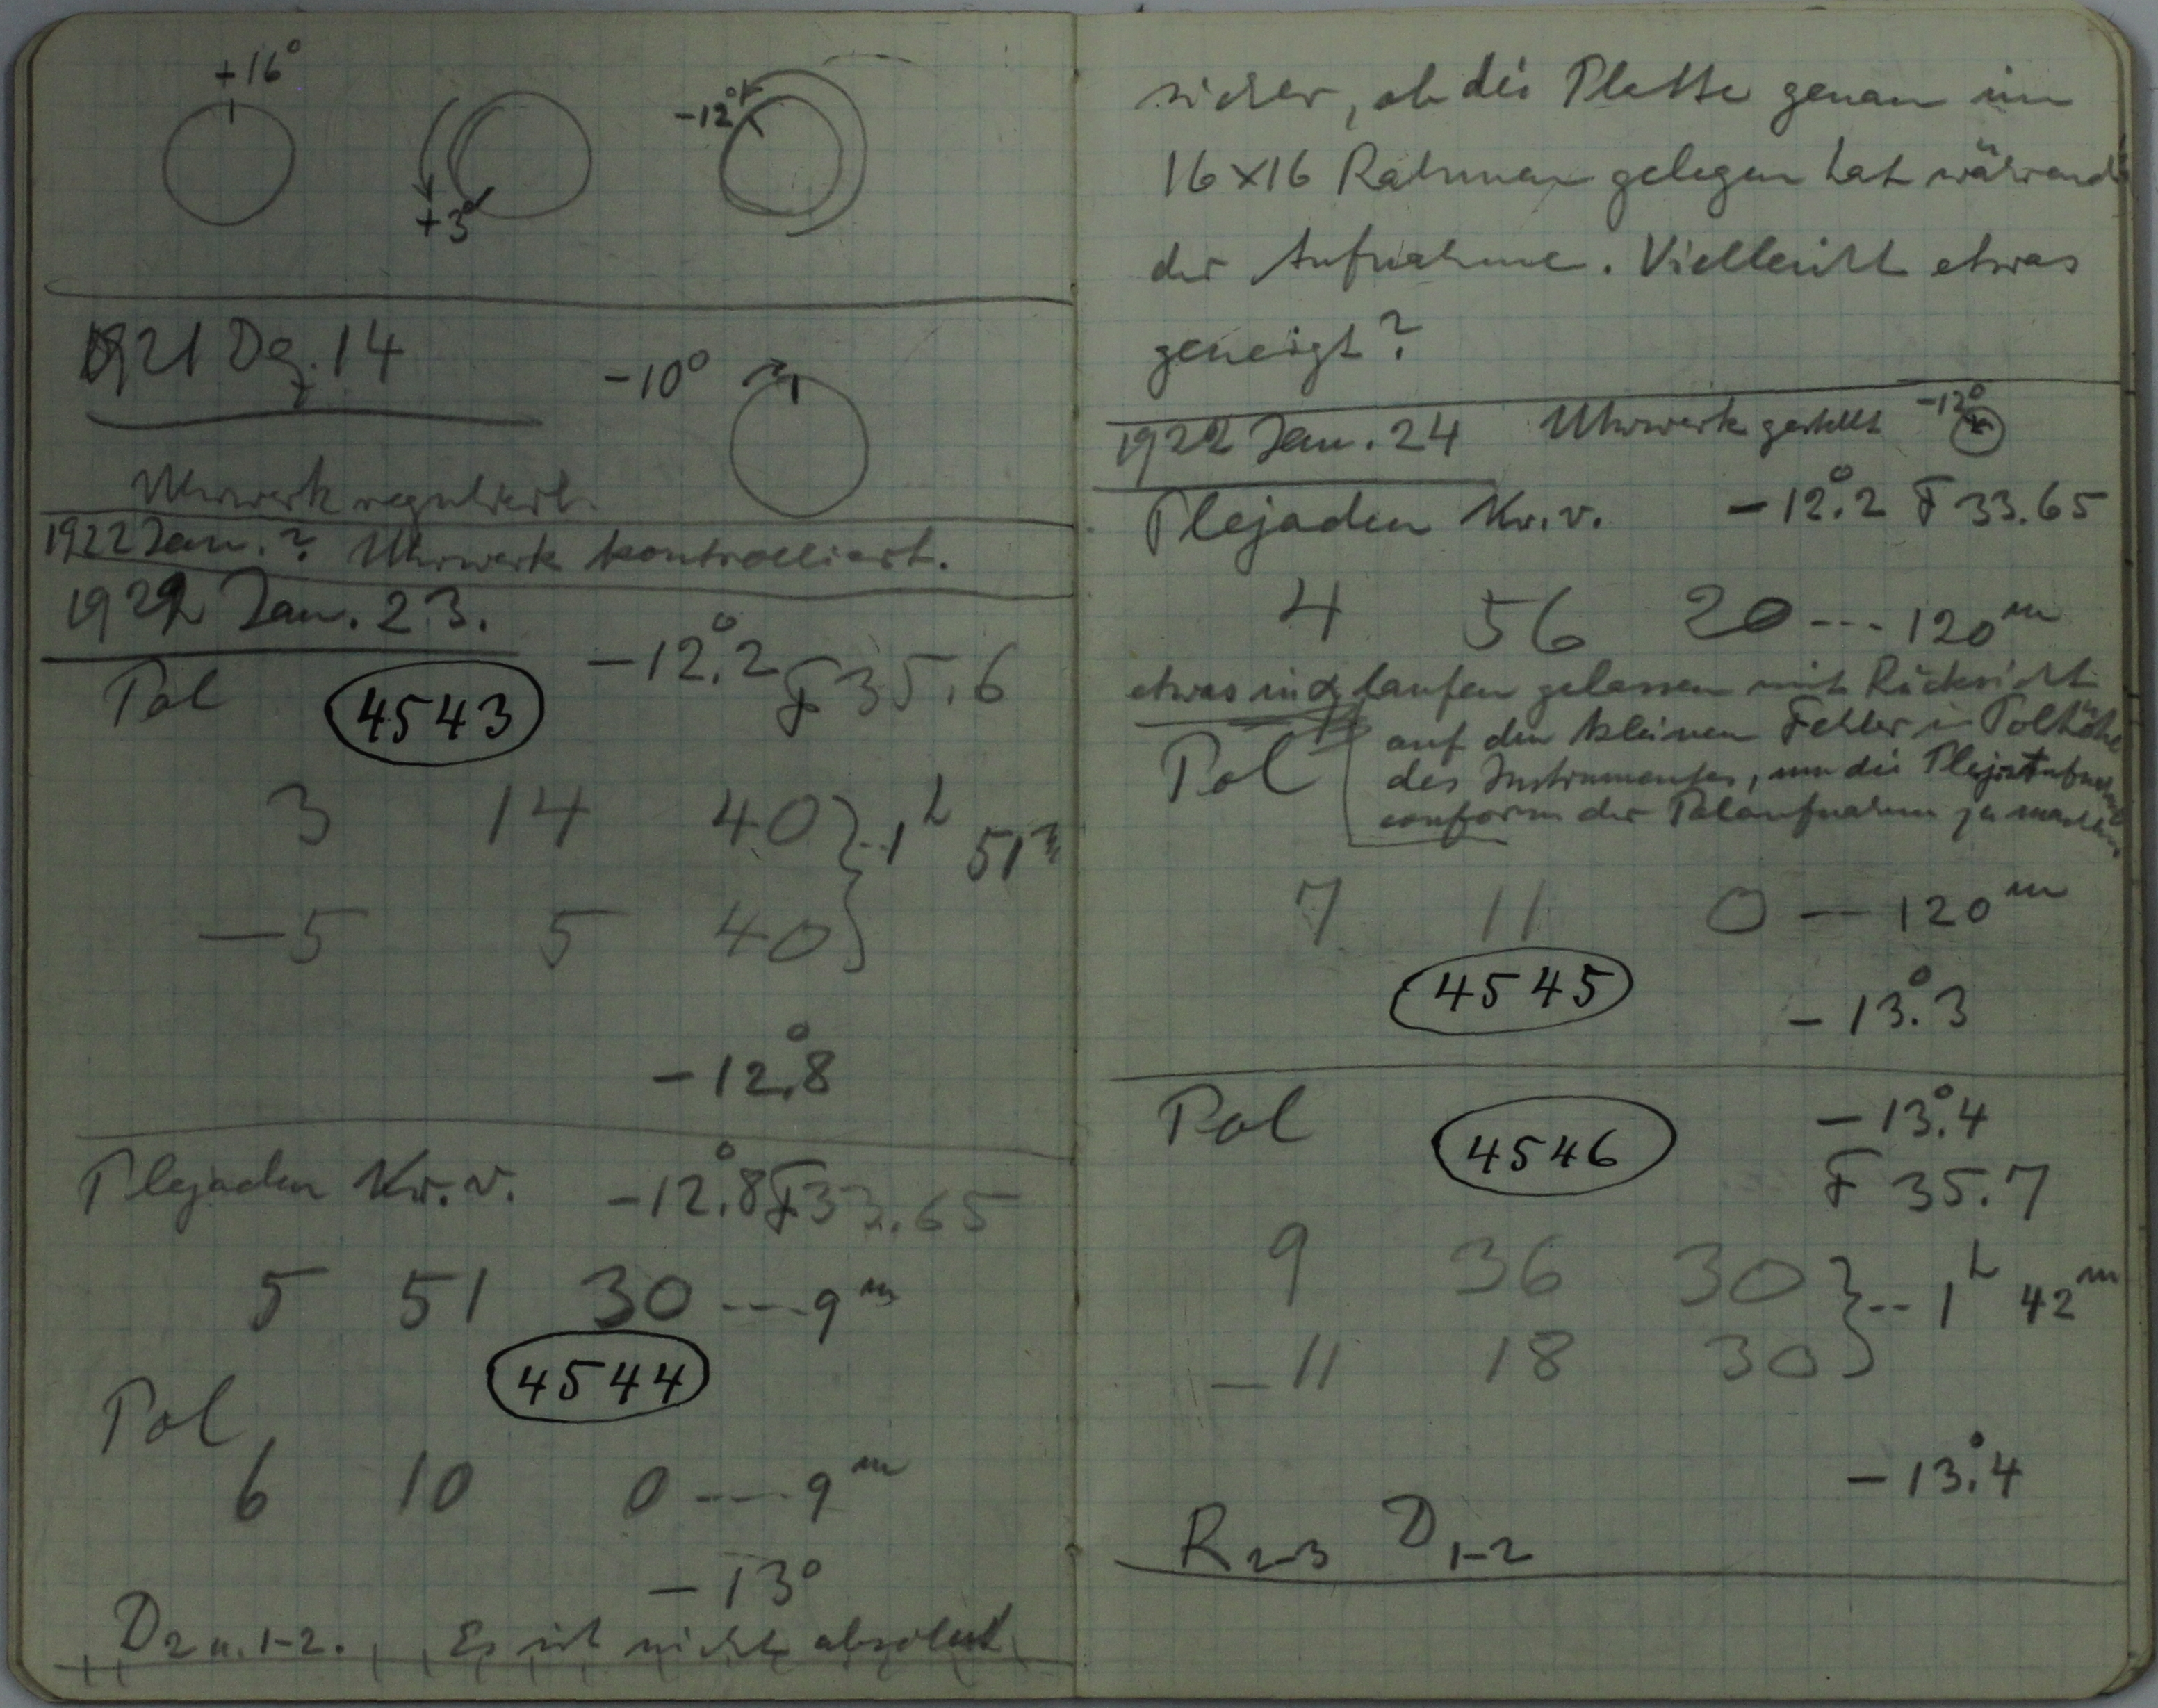 +16°
+3°
-12°
1921 Dez. 14
-10°
Uhrwerk reguliert.
1922 Jan. ? Uhrwerk kontrolliert.
1922 Jan. 23.
Pol 4543 -12°.2 F 35.6
3 14 40 } -- 1h 51m
— 5 5 40
-12°.8
Plejaden Kr. v. -12°.8 F 33.65
5 51 30 --- 9m
4544
Pol
6 10 0 --- 9m
-13°
D 2 u. 1-2. Es ist nicht absolut
sicher, ob die Platte genau im
16×16 Rahmen gelegen hat während
der Aufnahme. Vielleicht etwas
geneigt?
1922 Jan. 24 Uhrwerk gestellt -12°
Plejaden Kr. v. -12°.2 F 33.65
4 56 20 --- 120m
etwas in α laufen gelassen mit Rücksicht
auf den kleinen Fehler in Polhöhe
des Instrumentes, um die
conform der Polaufnahme zu machen
Pol
7 11 0 — 120m
4545
-13°.3
Pol 4546 -13°.4
F 35.7
9 36 30 } -- 1h 42m
— 11 18 30
-13°.4
R 2-3 D 1-2